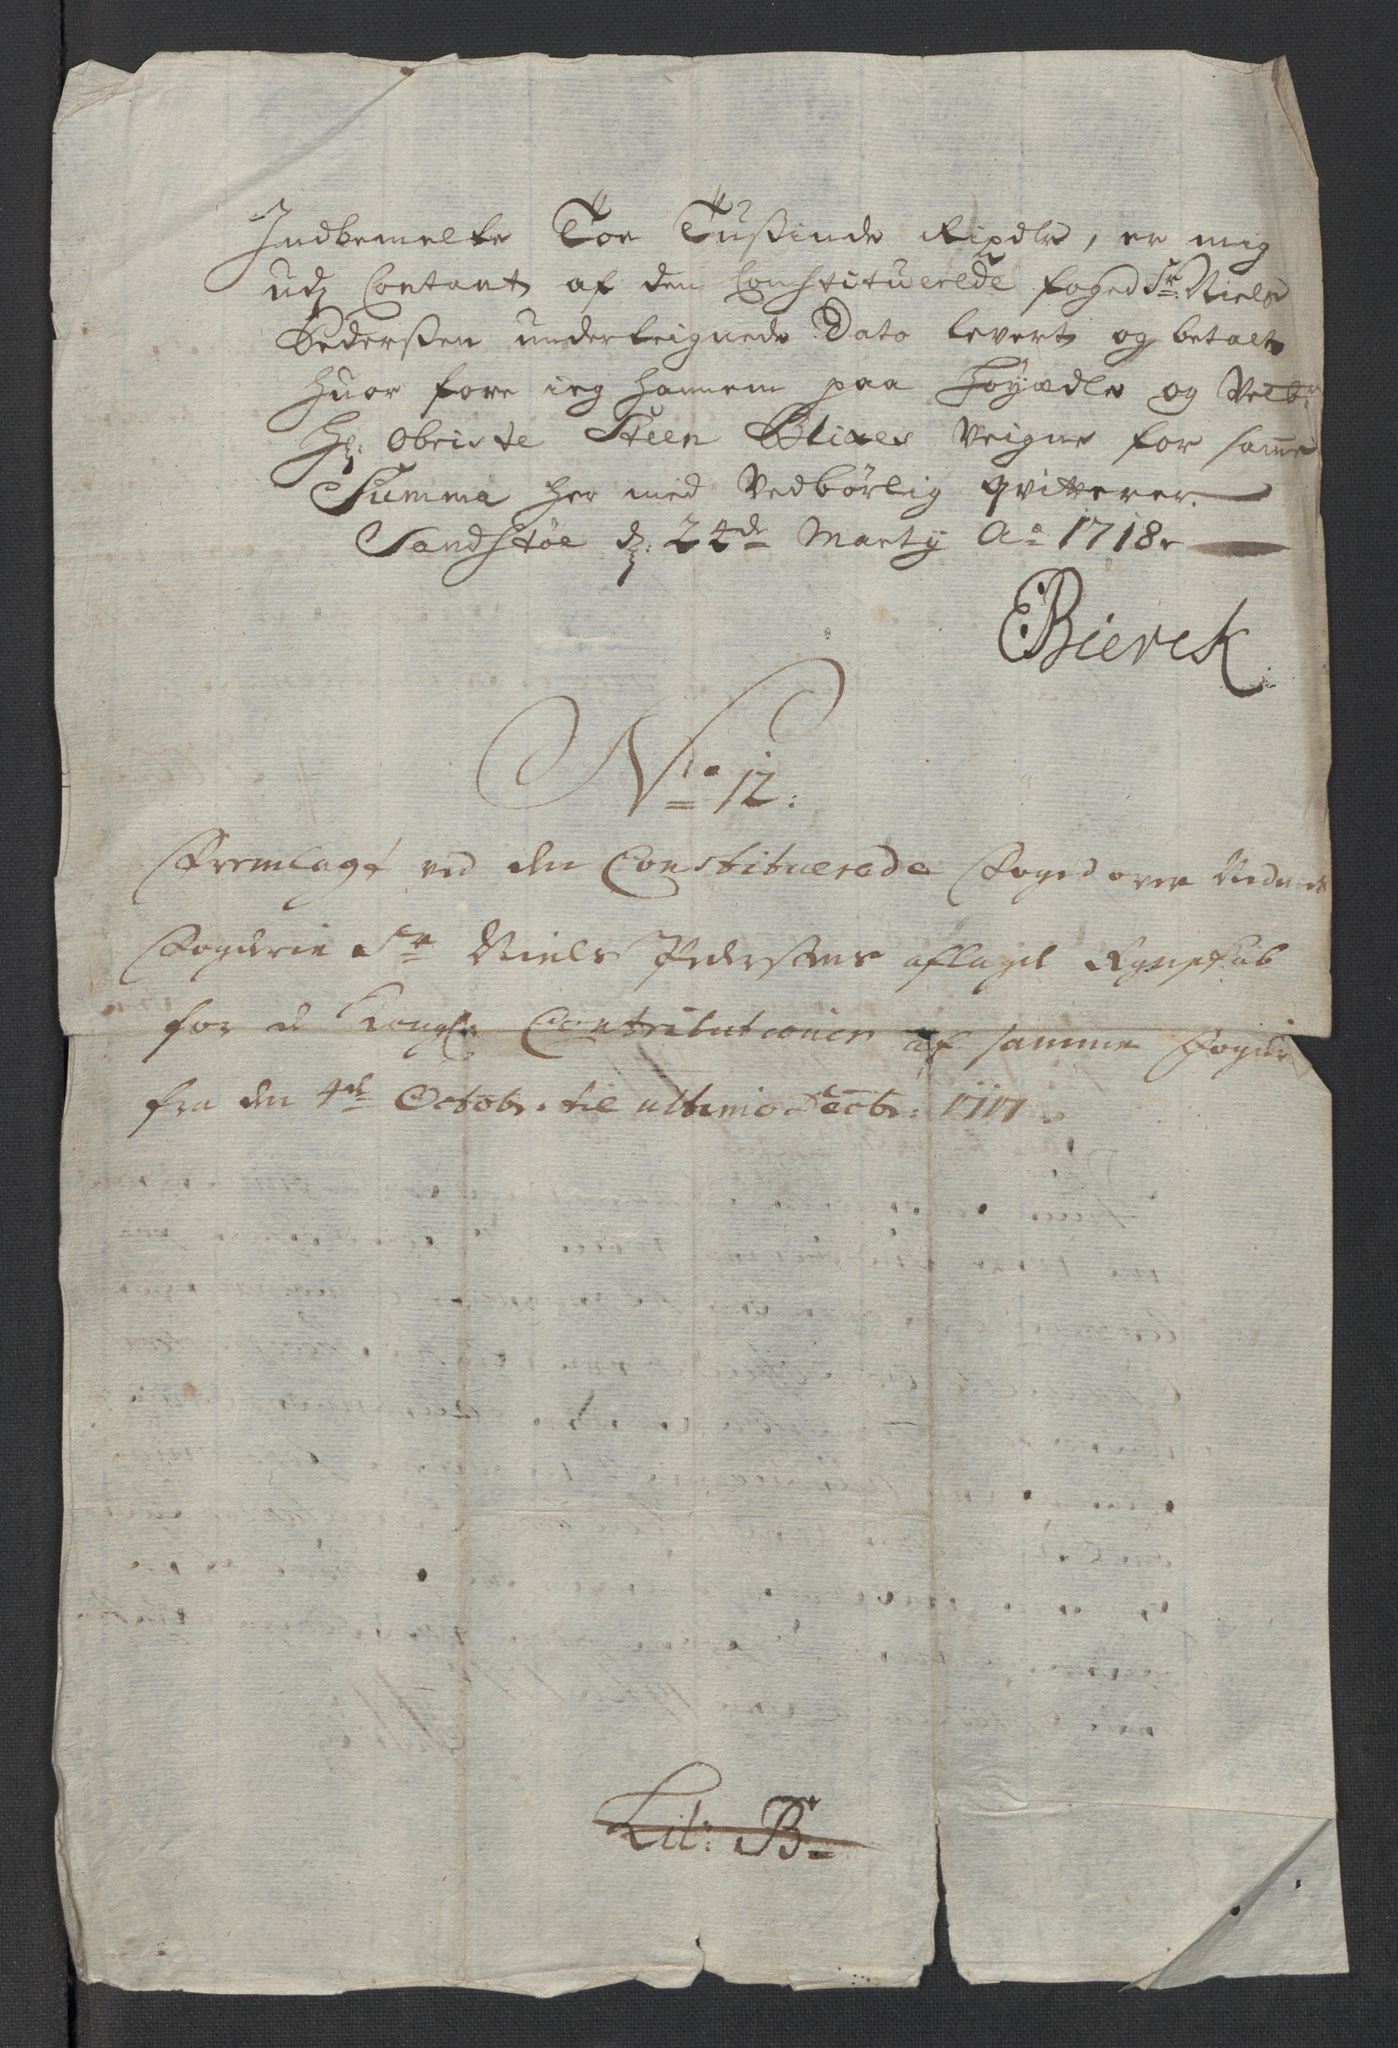 Indbemelte Toe Tußinde Rixdlr, er mig
udj Contant af den Constituerede foged Sr. Niels
Pederßen underteignede Dato levert og betalt
huor fore ieg hannem paa Høyædle og Velbr
Hr: Obriste Steen Blixes Veigne for samme
Summa her med Vedbørlig qvitterer.
Sandstøe d: 24de Marty Ao 1718.
EBierck
No 12:
Fremlagt ved den Constituerede Foged over
Fogderie Sr Niels Pedersens aflagde Regnskab
for de Kongl: Contributioner af samme Fogderi
fra den 4de Octobr. til ultimo Decbr: 1717.
Lit: B